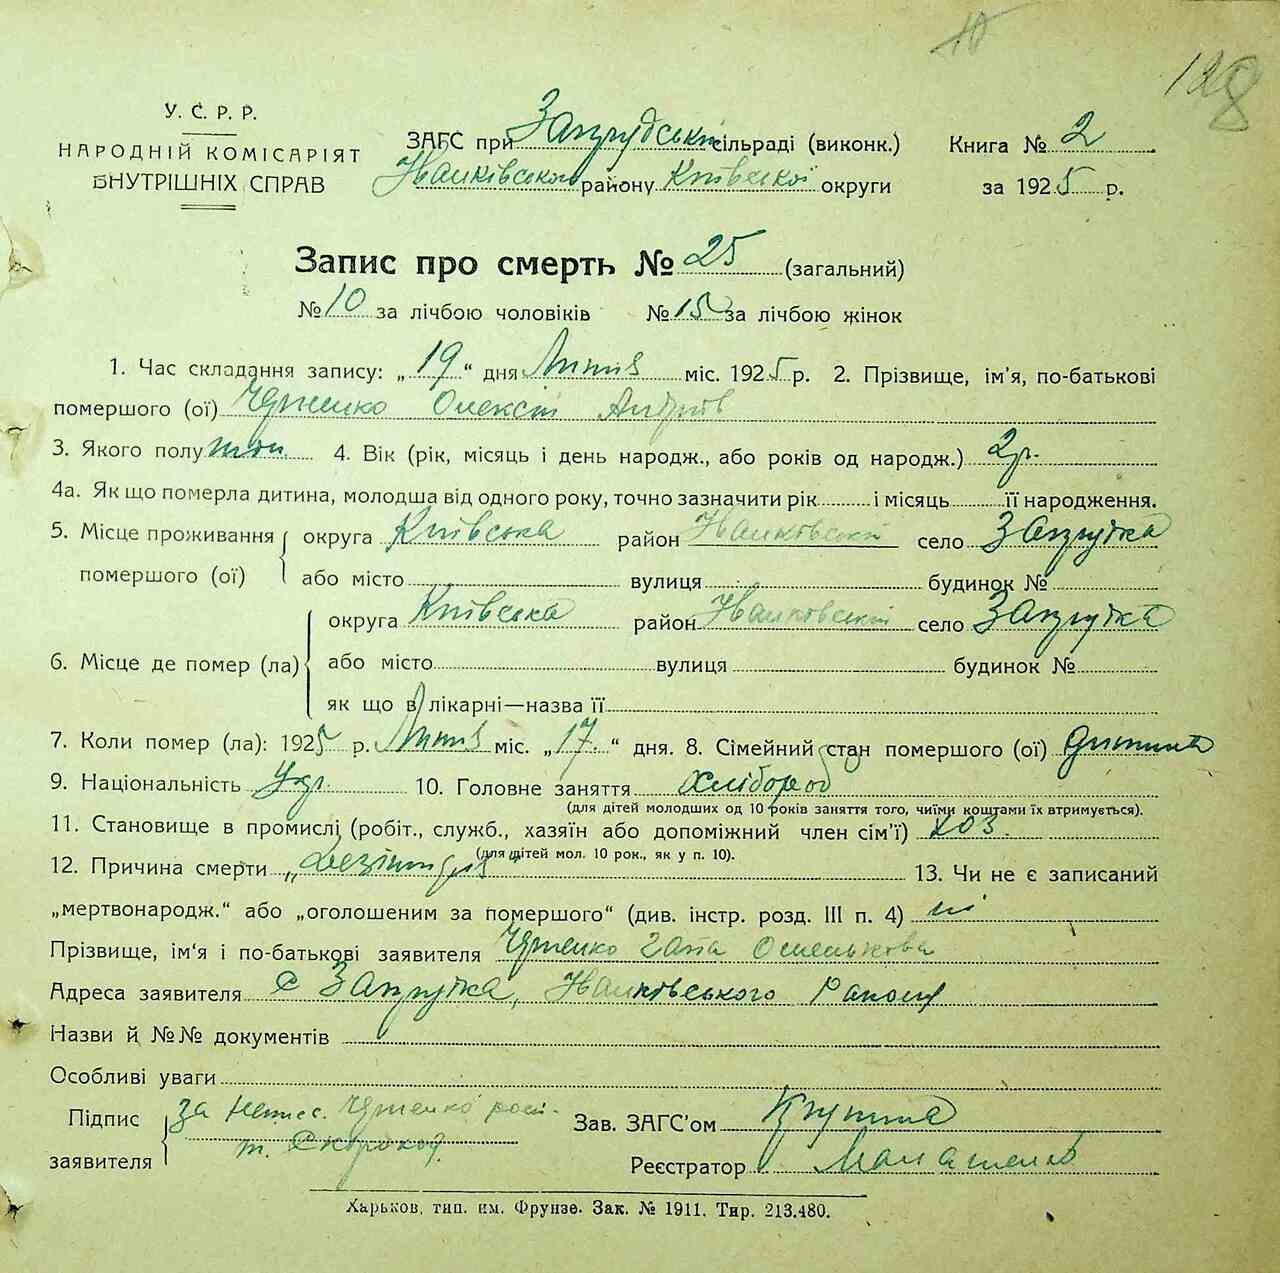 128
У. С. Р. Р.
НАРОДНІЙ КОМІСАРІЯТ
ВНУТРІШНІХ СПРАВ
ЗАГС при Запрудській сільраді (виконк.)
Іванківського району Київської округи
Книга № 2
за 1925 р.
Запис про смерть № 25 (загальний)
№ 10 за лічбою чоловіків № 15 за лічбою жінок
1. Час складання запису: „19“ дня Липня міс. 1925 р. 2. Прізвище, ім’я, по-батькові
помершого (ої) Олексій Андріїв
3. Якого полу 4. Вік (рік, місяць і день народж., або років од народж.) 2р.
4а. Як що померла дитина, молодша від одного року, точно зазначити рік і місяць її народження.
5. Місце проживання помершого (ої) округа Київська район Іванковський село Запрудка
або місто вулиця будинок №
6. Місце де помер (ла) округа Київська район Іванковський село Запрудка
або місто вулиця будинок №
як що в лікарні—назва її
7. Коли помер (ла): 1925 р. Липня міс. „17.“ дня. 8. Сімейний стан помершого (ої) дитина
9. Національність Укр. 10. Головне заняття Хлібороб
(для дітей молодших од 10 років заняття того, чиїми коштами їх втримується).
11. Становище в промислі (робіт., служб., хазяїн або допоміжний член сім’ї) хоз.
(для дітей мол. 10 рок., як у п. 10).
12. Причина смерти „Дезінтрія“ 13. Чи не є записаний
„мертвонародж.“ або „оголошеним за помершого“ (див. інстр. розд. III п. 4) ні
Прізвище, ім‘я і по-батькові заявителя
Адреса заявителя с Запрудка, Іванківського Району
Назви й №№ документів
Особливі уваги
Підпис заявителя за
Зав. ЗАГС’ом
Реєстратор
Харьков, тип. им. Фрунзе. Зак. № 1911. Тир. 213.480.